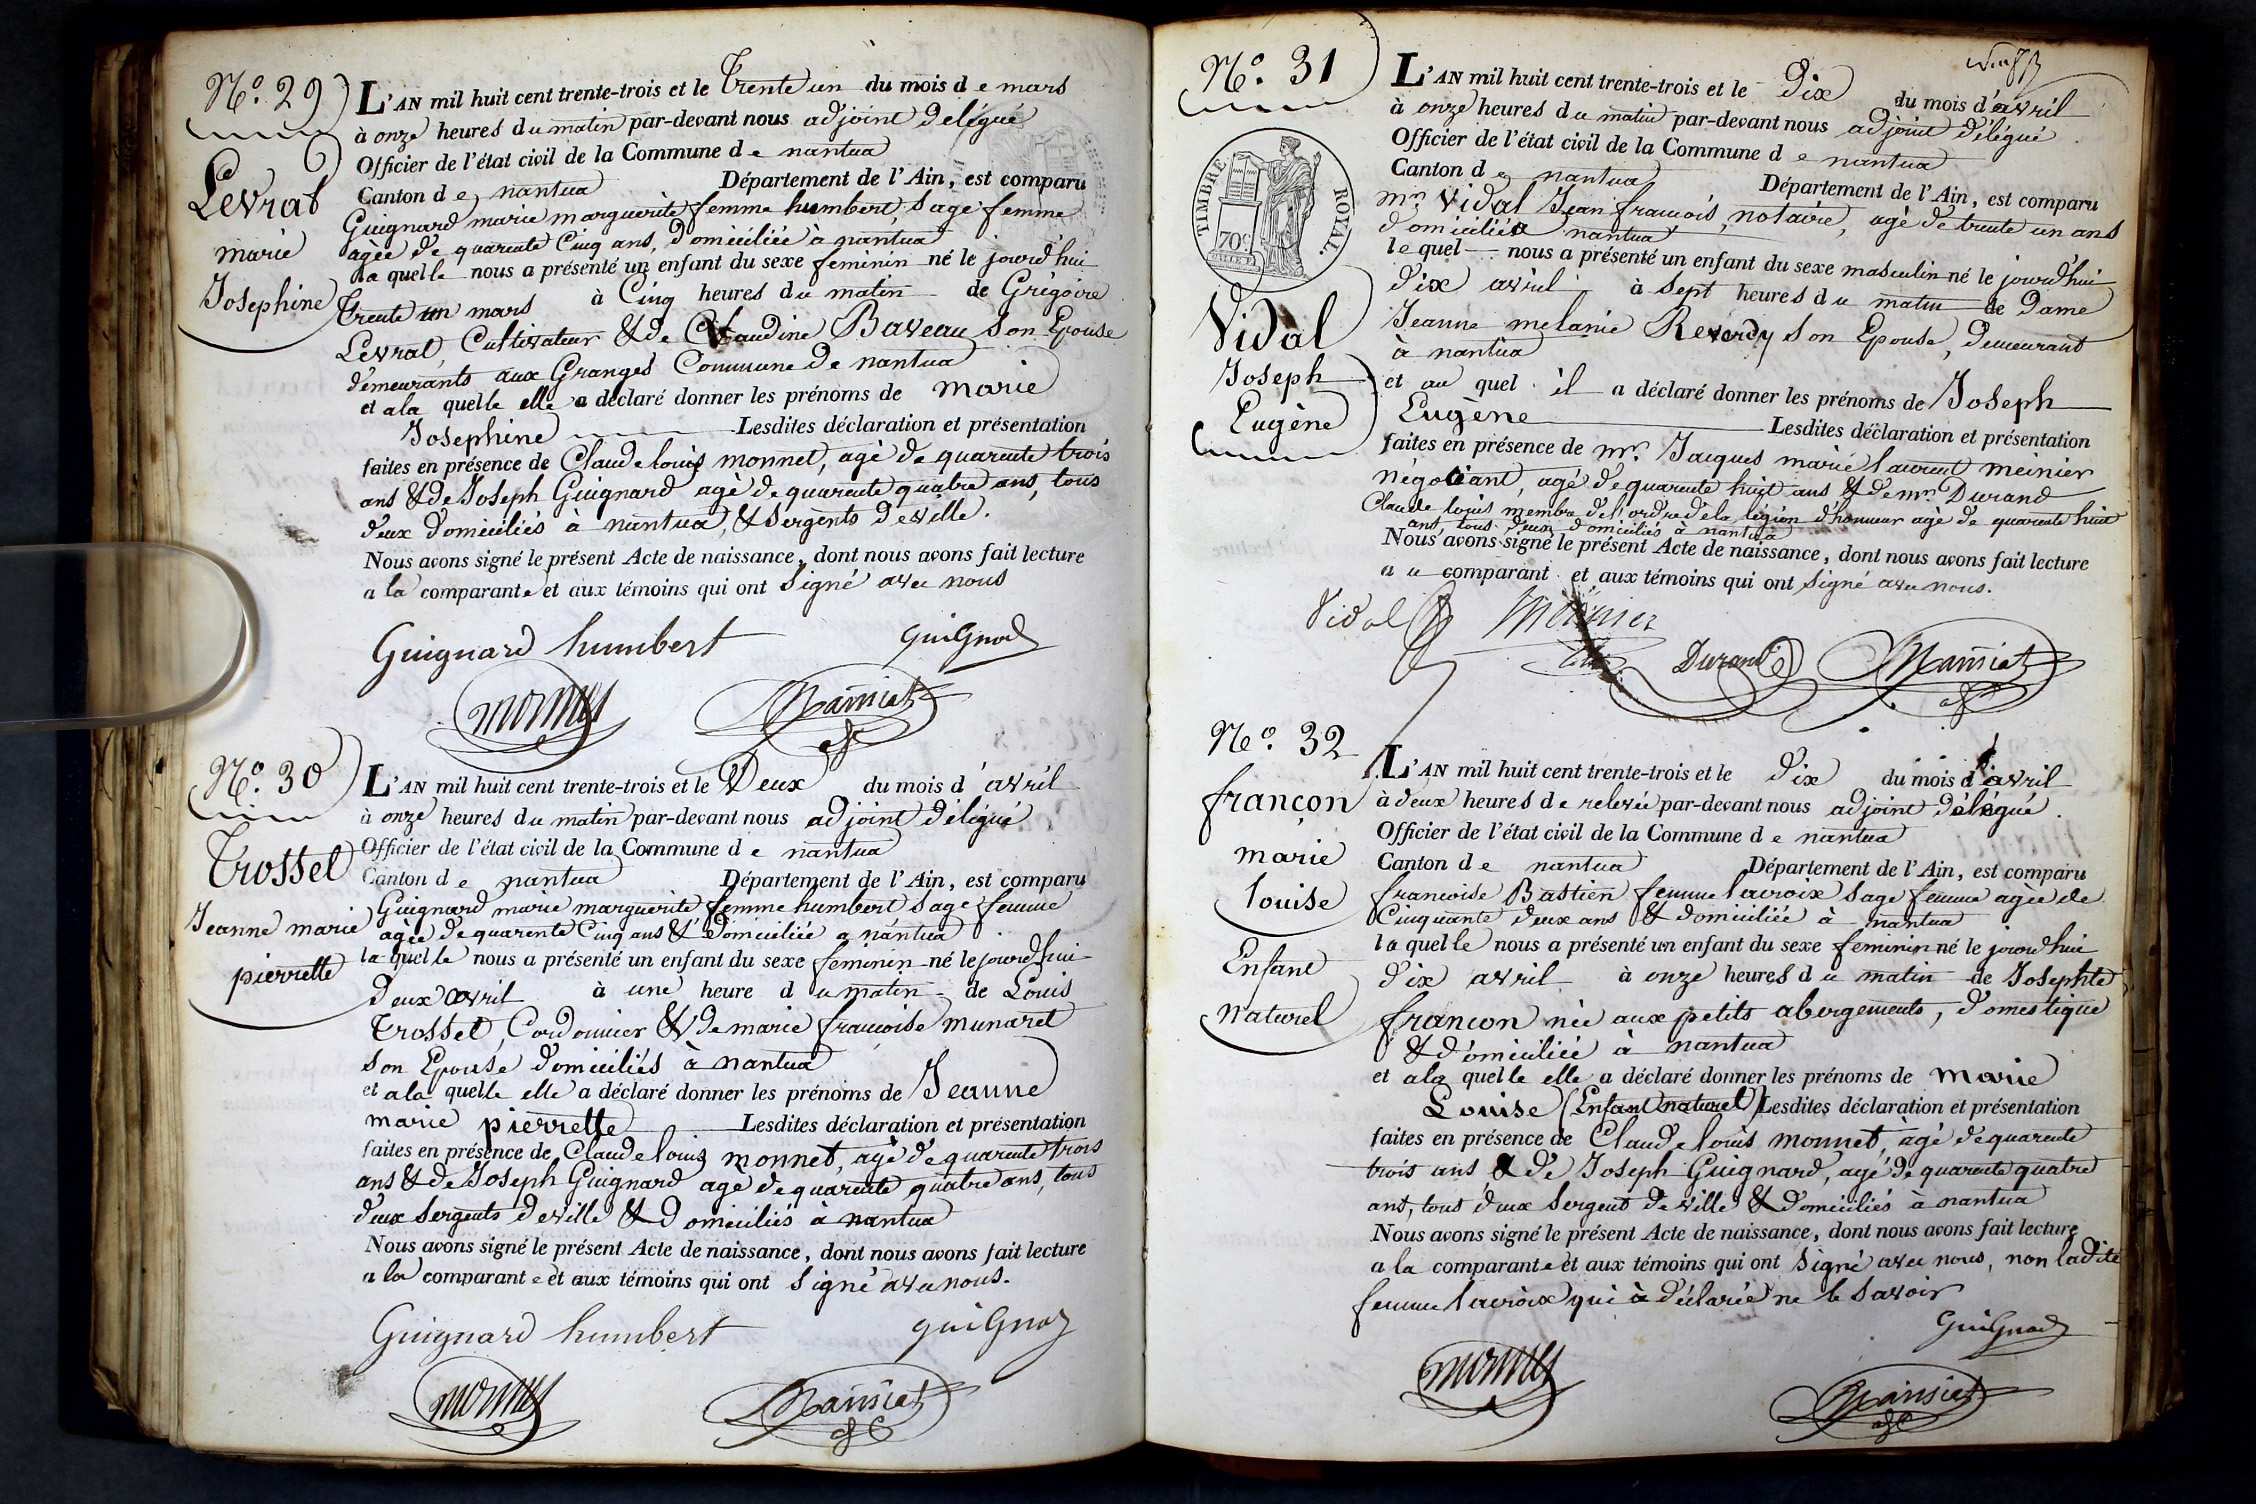 N.o 29
Levrat
marie
Josephine
L'AN mil huit cent trente-trois et le Trente un du mois de mars
à onze heures du matin par-devant nous adjoint délégué
Officier de l'état civil de la Commune de nantua
Canton de nantua Département de l'Ain, est comparu
Guignard marie marguerite femme humbert, Sage femme
agée de quarente Cinq ans, domiciliée à nantua
la quelle nous a présenté un enfant du sexe feminin né le jourd'hui
Trente un mars à Cinq heures du matin de Grégoire
Levrat, Cultivateur & de Claudine Baveau son Epouse
demeurants aux Granges Commune de nantua
et a la quelle elle a déclaré donner les prénoms de marie
Josephine Lesdites déclaration et présentation
faites en présence de Claude louis monnet, agé de quarente trois
ans & de Joseph Guignard agé de quarente quatre ans, tous
deux domiciliés à nantua, & Sergents de ville.
Nous avons signé le présent Acte de naissance, dont nous avons fait lecture
a la comparante et aux témoins qui ont Signé avec nous
Guignard humbert guignard
monnet
N.o 30
Trossel
Jeanne marie
pierrette
L'AN mil huit cent trente-trois et le Deux du mois d'avril
à onze heures du matin par-devant nous adjoint délégué
Officier de l'état civil de la Commune de nantua
Canton de nantua Département de l'Ain, est comparu
Guignard marie marguerite femme humbert Sage femme
agée de quarente Cinq ans & domiciliée a nantua
la quelle nous a présenté un enfant du sexe feminin né le jourd'hui
deux avril à une heure du matin de Louis
Trossel, Cordonnier & de marie françoise munaret
son Epouse domiciliés à nantua
et a la quelle elle a déclaré donner les prénoms de Jeanne
marie pierrette Lesdites déclaration et présentation
faites en présence de Claude louis monnet, agé de quarente trois
ans & de Joseph Guignard agé de quarente quatre ans, tous
deux Sergents de ville & domiciliés à nantua
Nous avons signé le présent Acte de naissance, dont nous avons fait lecture
a la comparante et aux témoins qui ont Signé avec nous.
Guignard humbert guignard
monnet
N.o 31
TIMBRE ROYAL.
70c
Vidal
Joseph
Eugène
L'AN mil huit cent trente-trois et le Dix du mois d'avril
à onze heures du matin par-devant nous adjoint délégué
Officier de l'état civil de la Commune de nantua
Canton de nantua Département de l'Ain, est comparu
mr Vidal Jean françois, notaire, agé de trente un ans
domicilié à nantua
le quel nous a présenté un enfant du sexe masculin né le jourd'hui
dix avril à sept heures du matin de Dame
Jeanne melanie Reverdy son Epouse, demeurant
à nantua
et au quel il a déclaré donner les prénoms de Joseph
Eugène Lesdites déclaration et présentation
faites en présence de mr. Jacques marie laurent meinier
négociant, agé de quarente huit ans & de mr Durand
Claude louis membre de l'ordre de la légion d'honneur agé de quarente huit
ans, tous deux domiciliés à nantua
Nous avons signé le présent Acte de naissance, dont nous avons fait lecture
au comparant et aux témoins qui ont Signé avec nous.
Vidal Meinier
Durand
N.o 32
françon
marie
louise
Enfant
naturel
L'AN mil huit cent trente-trois et le dix du mois d'avril
à deux heures de relevée par-devant nous adjoint délégué
Officier de l'état civil de la Commune de nantua
Canton de nantua Département de l'Ain, est comparu
francoise Bastien femme lacroix Sage femme agée de
Cinquante deux ans & domiciliée à nantua
la quelle nous a présenté un enfant du sexe feminin né le jourd'hui
dix avril à onze heures du matin de Josephte
françon née aux petits abergements, domestique
& domiciliée à nantua
et a la quelle elle a déclaré donner les prénoms de marie
Louise (Enfant naturel) Lesdites déclaration et présentation
faites en présence de Claude louis monnet, agé de quarente
trois ans & de Joseph Guignard, agé de quarente quatre
ans, tous deux Sergent de ville & domiciliés à nantua
Nous avons signé le présent Acte de naissance, dont nous avons fait lecture
a la comparante et aux témoins qui ont Signé avec nous, non ladite
femme lacroix qui a déclaré ne le Savoir
guignard
monnet